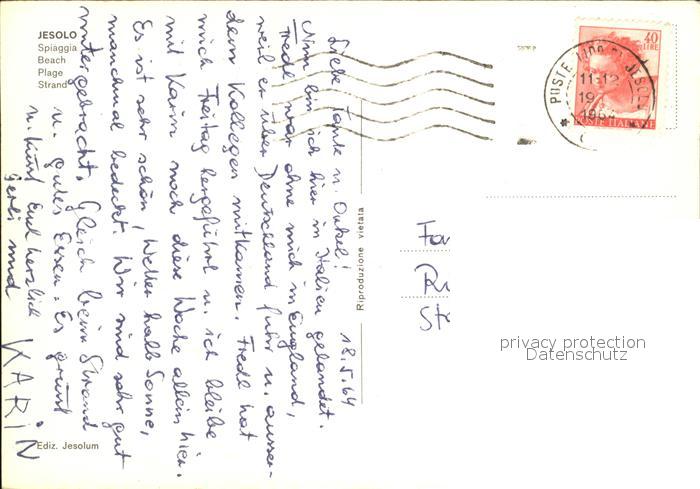 JESOLO
Spiaggia
Beach
Plage
Strand
18.5.64
Liebe Tante u. Onkel!
Nun bin ich hier in Italien gelandet.
Fredl war ohne mich in England,
weil er über Deutschland fuhr u. ausser-
dem Kollegen mitkamen. Fredl hat
mich Freitag hergeführt u. ich bleibe
mit Karin noch diese Woche allein hier.
Es ist sehr schön, Wetter halb Sonne,
manchmal bedeckt. Wir sind sehr gut
untergebracht, gleich beim Strand
u. gutes Essen. Es grüsst
u. küsst Euch herzlich
und
KARIN
Ediz. Jesolum
Riproduzione vietata
40
LIRE
POSTE ITALIANE
POSTE JESOLO
11-12
19
1964
Fa
St
privacy protection
Datenschutz